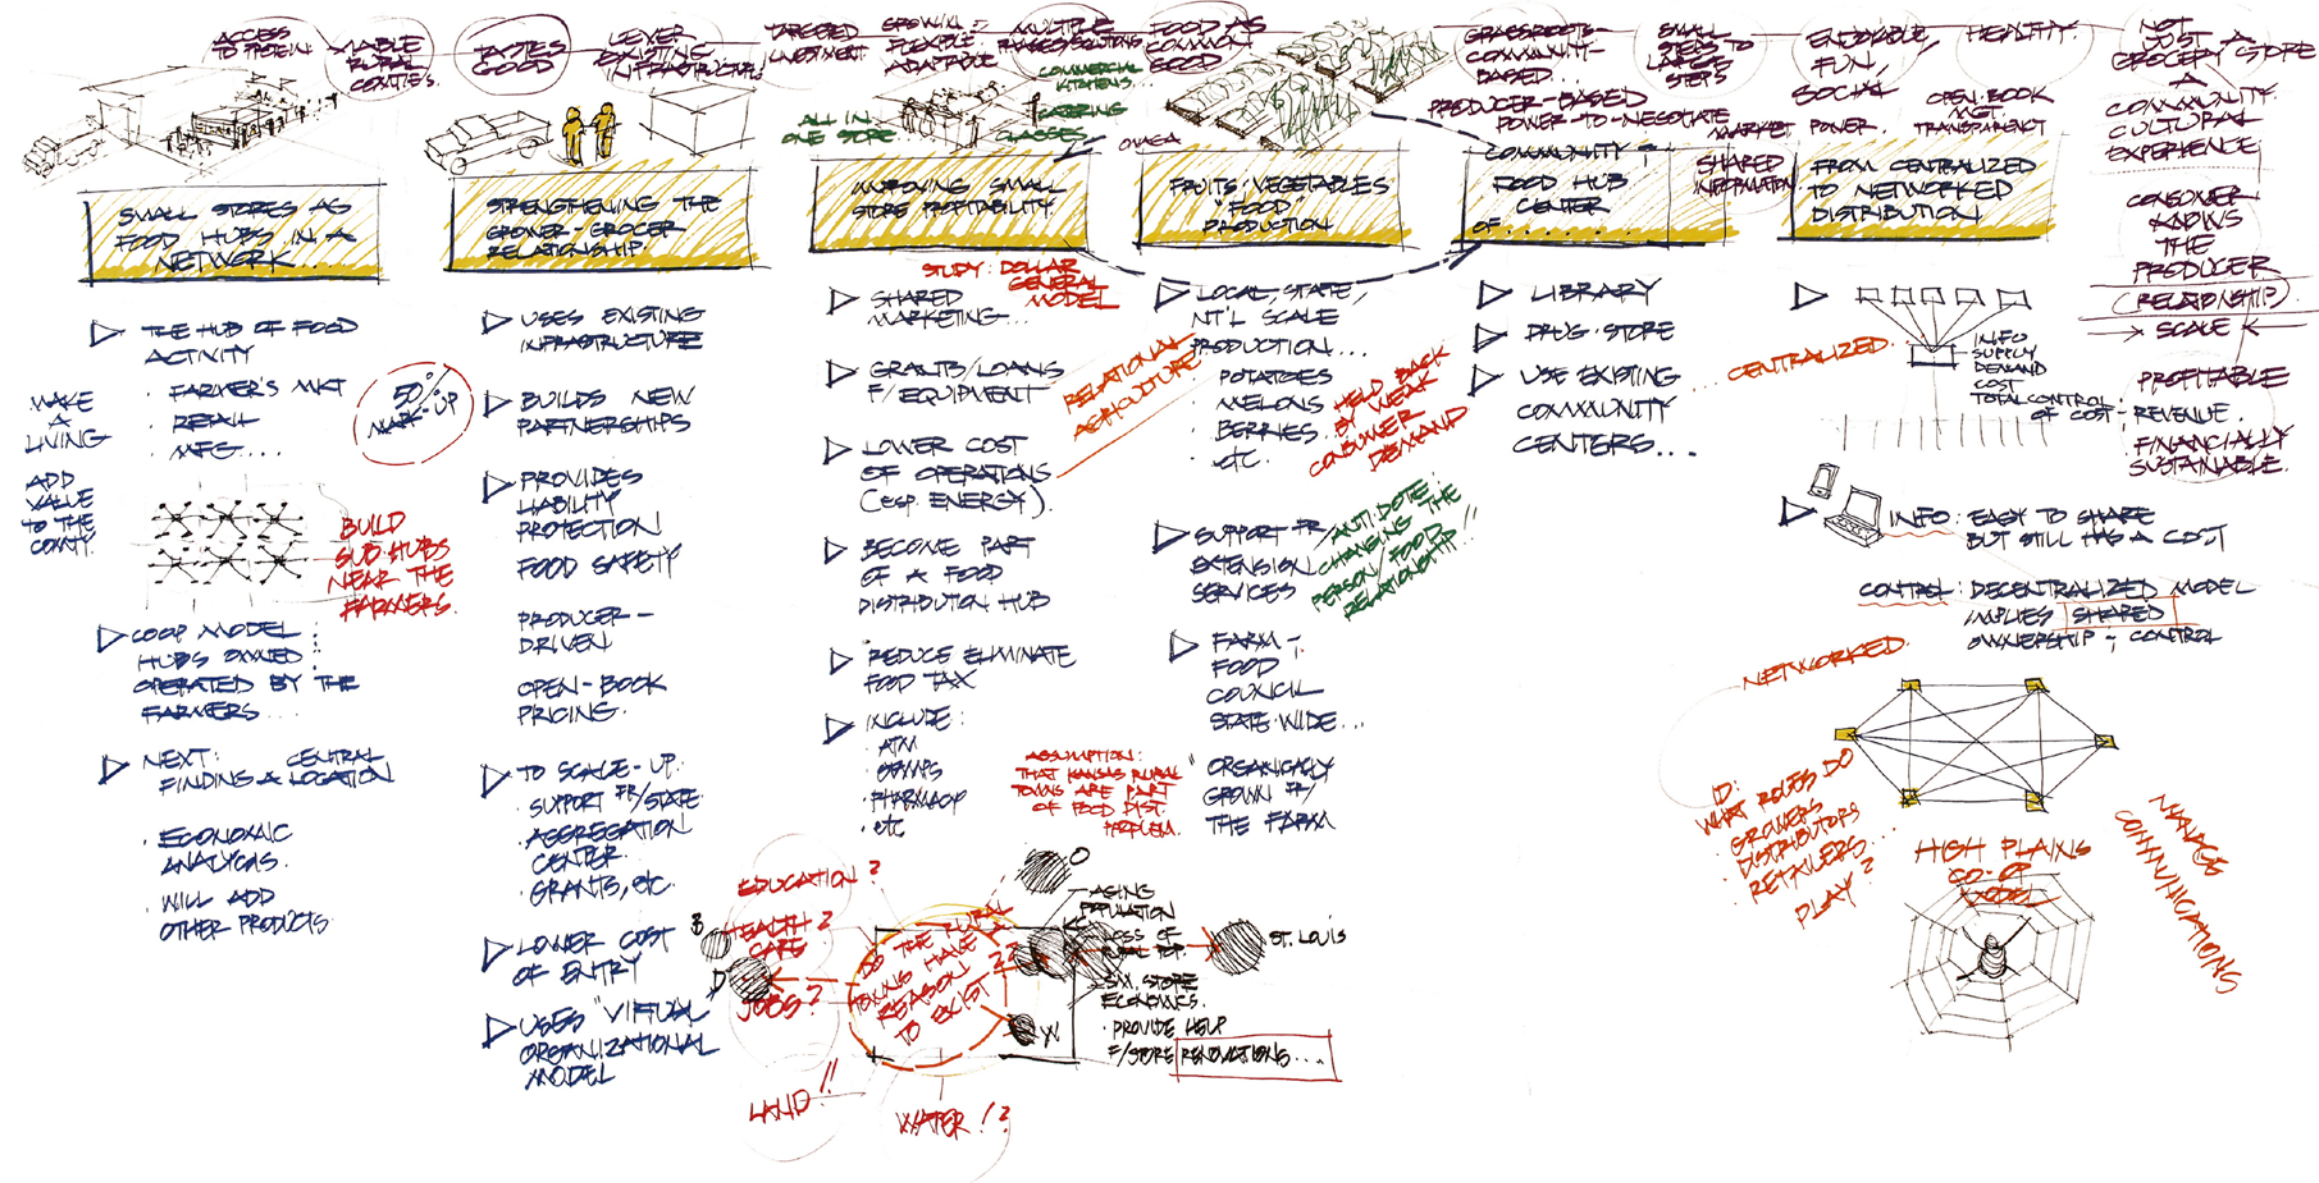 ACCESS
TO PROTEIN
VIABLE
RURAL
COUNTIES.
TASTES
GOOD
LEVER
EXISTING
INFRASTRUCTURE
TARGETED
INVESTMENT
GROWING =
FLEXIBLE
ADAPTABLE
MULTIPLE
PHASES/SOLUTIONS
FOOD AS
COMMON
GOOD
GRASSROOTS-
COMMUNITY-
BASED...
SMALL
STEPS TO
LARGE
STEPS
ENJOYABLE,
FUN,
SOCIAL
HEALTHY.
NOT
JUST A
GROCERY STORE
A
COMMUNITY.
CULTURAL
EXPERIENCE
CONSUMER
KNOWS
THE
PRODUCER
(RELATIONSHIP)
SCALE
PROFITABLE
REVENUE.
FINANCIALLY
SUSTAINABLE.
PRODUCER-BASED
POWER-TO-NEGOTIATE
MARKET POWER.
OPEN-BOOK
MGT.
TRANSPARENCY
SHARED
INFORMATION
ALL IN
ONE STORE
COMMERCIAL
KITCHENS...
CATERING
CLASSES
SMALL STORES AS
FOOD HUBS IN A
NETWORK...
THE HUB OF FOOD
ACTIVITY
· FARMER'S MKT
· RETAIL
· MFG...
MAKE
A
LIVING
ADD
VALUE
TO THE
COUNTY.
50%
MARK-UP
BUILD
SUB-HUBS
NEAR THE
FARMERS.
COOP MODEL:
HUBS OWNED;
OPERATED BY THE
FARMERS...
NEXT: CENTRAL
FINDING A LOCATION
· ECONOMIC
ANALYSIS.
· WILL ADD
OTHER PRODUCTS
STRENGTHENING THE
GROWER-GROCER
RELATIONSHIP.
USES EXISTING
INFRASTRUCTURE
BUILDS NEW
PARTNERSHIPS
PROVIDES
LIABILITY
PROTECTION
FOOD SAFETY
PRODUCER-
DRIVEN
OPEN-BOOK
PRICING.
TO SCALE-UP:
· SUPPORT FR/STATE
· AGGREGATION
CENTER.
· GRANTS, etc.
LOWER COST
OF ENTRY
USES "VIRTUAL"
ORGANIZATIONAL
MODEL
IMPROVING SMALL
STORE PROFITABILITY.
STUDY: DOLLAR
GENERAL
MODEL
SHARED
MARKETING...
GRANTS/LOANS
F/EQUIPMENT
LOWER COST
OF OPERATIONS
(esp. ENERGY).
BECOME PART
OF A FOOD
DISTRIBUTION HUB
REDUCE ELIMINATE
FOOD TAX
INCLUDE:
· ATM
· STAMPS
· PHARMACY
· etc
RELATIONAL
AGRICULTURE
FRUITS·VEGETABLES
"FOOD"
PRODUCTION
LOCAL, STATE,
NT'L SCALE
PRODUCTION...
· POTATOES
· MELONS
· BERRIES
· etc.
HELD BACK
BY WEAK
CONSUMER
DEMAND
SUPPORT FR/
EXTENSION
SERVICES
ANTIDOTE:
CHANGING THE
PERSON/FOOD
RELATIONSHIP!!
FARM-;
FOOD
COUNCIL
STATE-WIDE...
"ORGANICALLY
GROWN FR/
THE FARM
ASSUMPTION:
THAT KANSAS RURAL
TOWNS ARE PART
OF FOOD DIST.
PROBLEM.
COMMUNITY;
FOOD HUB
CENTER
OF......
LIBRARY
DRUG·STORE
USE EXISTING
COMMUNITY
CENTERS...
FROM CENTRALIZED
TO NETWORKED
DISTRIBUTION
CENTRALIZED.
INFO
SUPPLY
DEMAND
COST
TOTAL CONTROL
OF COST
INFO: EASY TO SHARE
BUT STILL HAS A COST
CONTROL: DECENTRALIZED MODEL
IMPLIES SHARED
OWNERSHIP; CONTROL
NETWORKED.
ID:
WHAT ROLES DO
· GROWERS
· DISTRIBUTORS
· RETAILERS...
PLAY?
HIGH PLAINS
CO-OP
MODEL
MANAGE
COMMUNICATIONS
EDUCATION?
HEALTH?
CARE
JOBS?
LAND!!
WATER!?
DO THE RURAL
TOWNS HAVE A
REASON
TO EXIST??
B
D
O
W
ST. LOUIS
AGING
POPULATION
LOSS OF
RURAL POP.
SM. STORE
ECONOMICS.
· PROVIDE HELP
F/STORE RENOVATIONS....